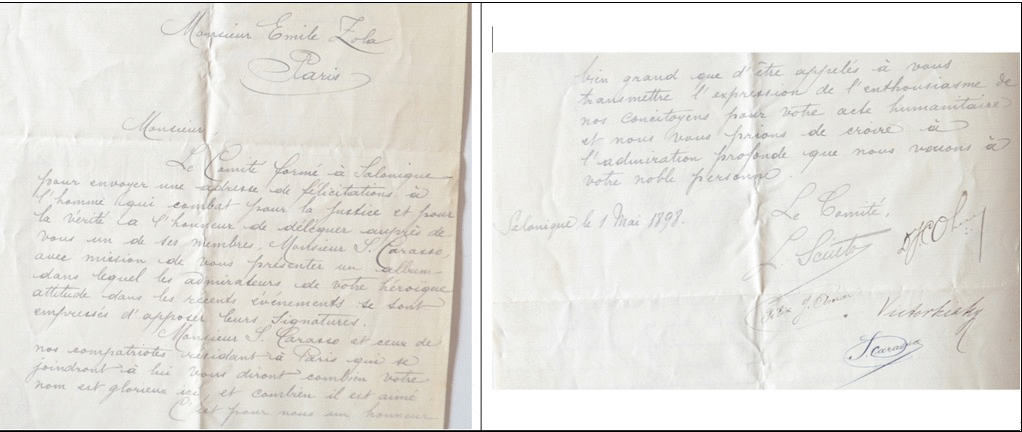 Monsieur Emile Zola
Paris
Monsieur,
Le Comité formé à Salonique
pour envoyer une adresse de félicitations à
l'homme qui combat pour la Justice et pour
la vérité a l'honneur de déléguer auprès de
vous un de ses membres, Monsieur S. Carasso,
avec mission de vous présenter un album
dans lequel les admirateurs de votre héroïque
attitude dans les récents événements se sont
empressés d'apposer leurs signatures.
Monsieur S. Carasso et ceux de
nos compatriotes résidant à Paris qui se
joindront à lui vous diront combien votre
nom est glorieux ici, et combien il est aimé
C'est pour nous un honneur
bien grand que d'être appelés à vous
transmettre l'expression de l'enthousiasme de
nos concitoyens pour votre acte humanitaire
et nous vous prions de croire à
l'admiration profonde que nous vouons à
votre noble personne.
Salonique le 1 Mai 1898.
Le Comité,